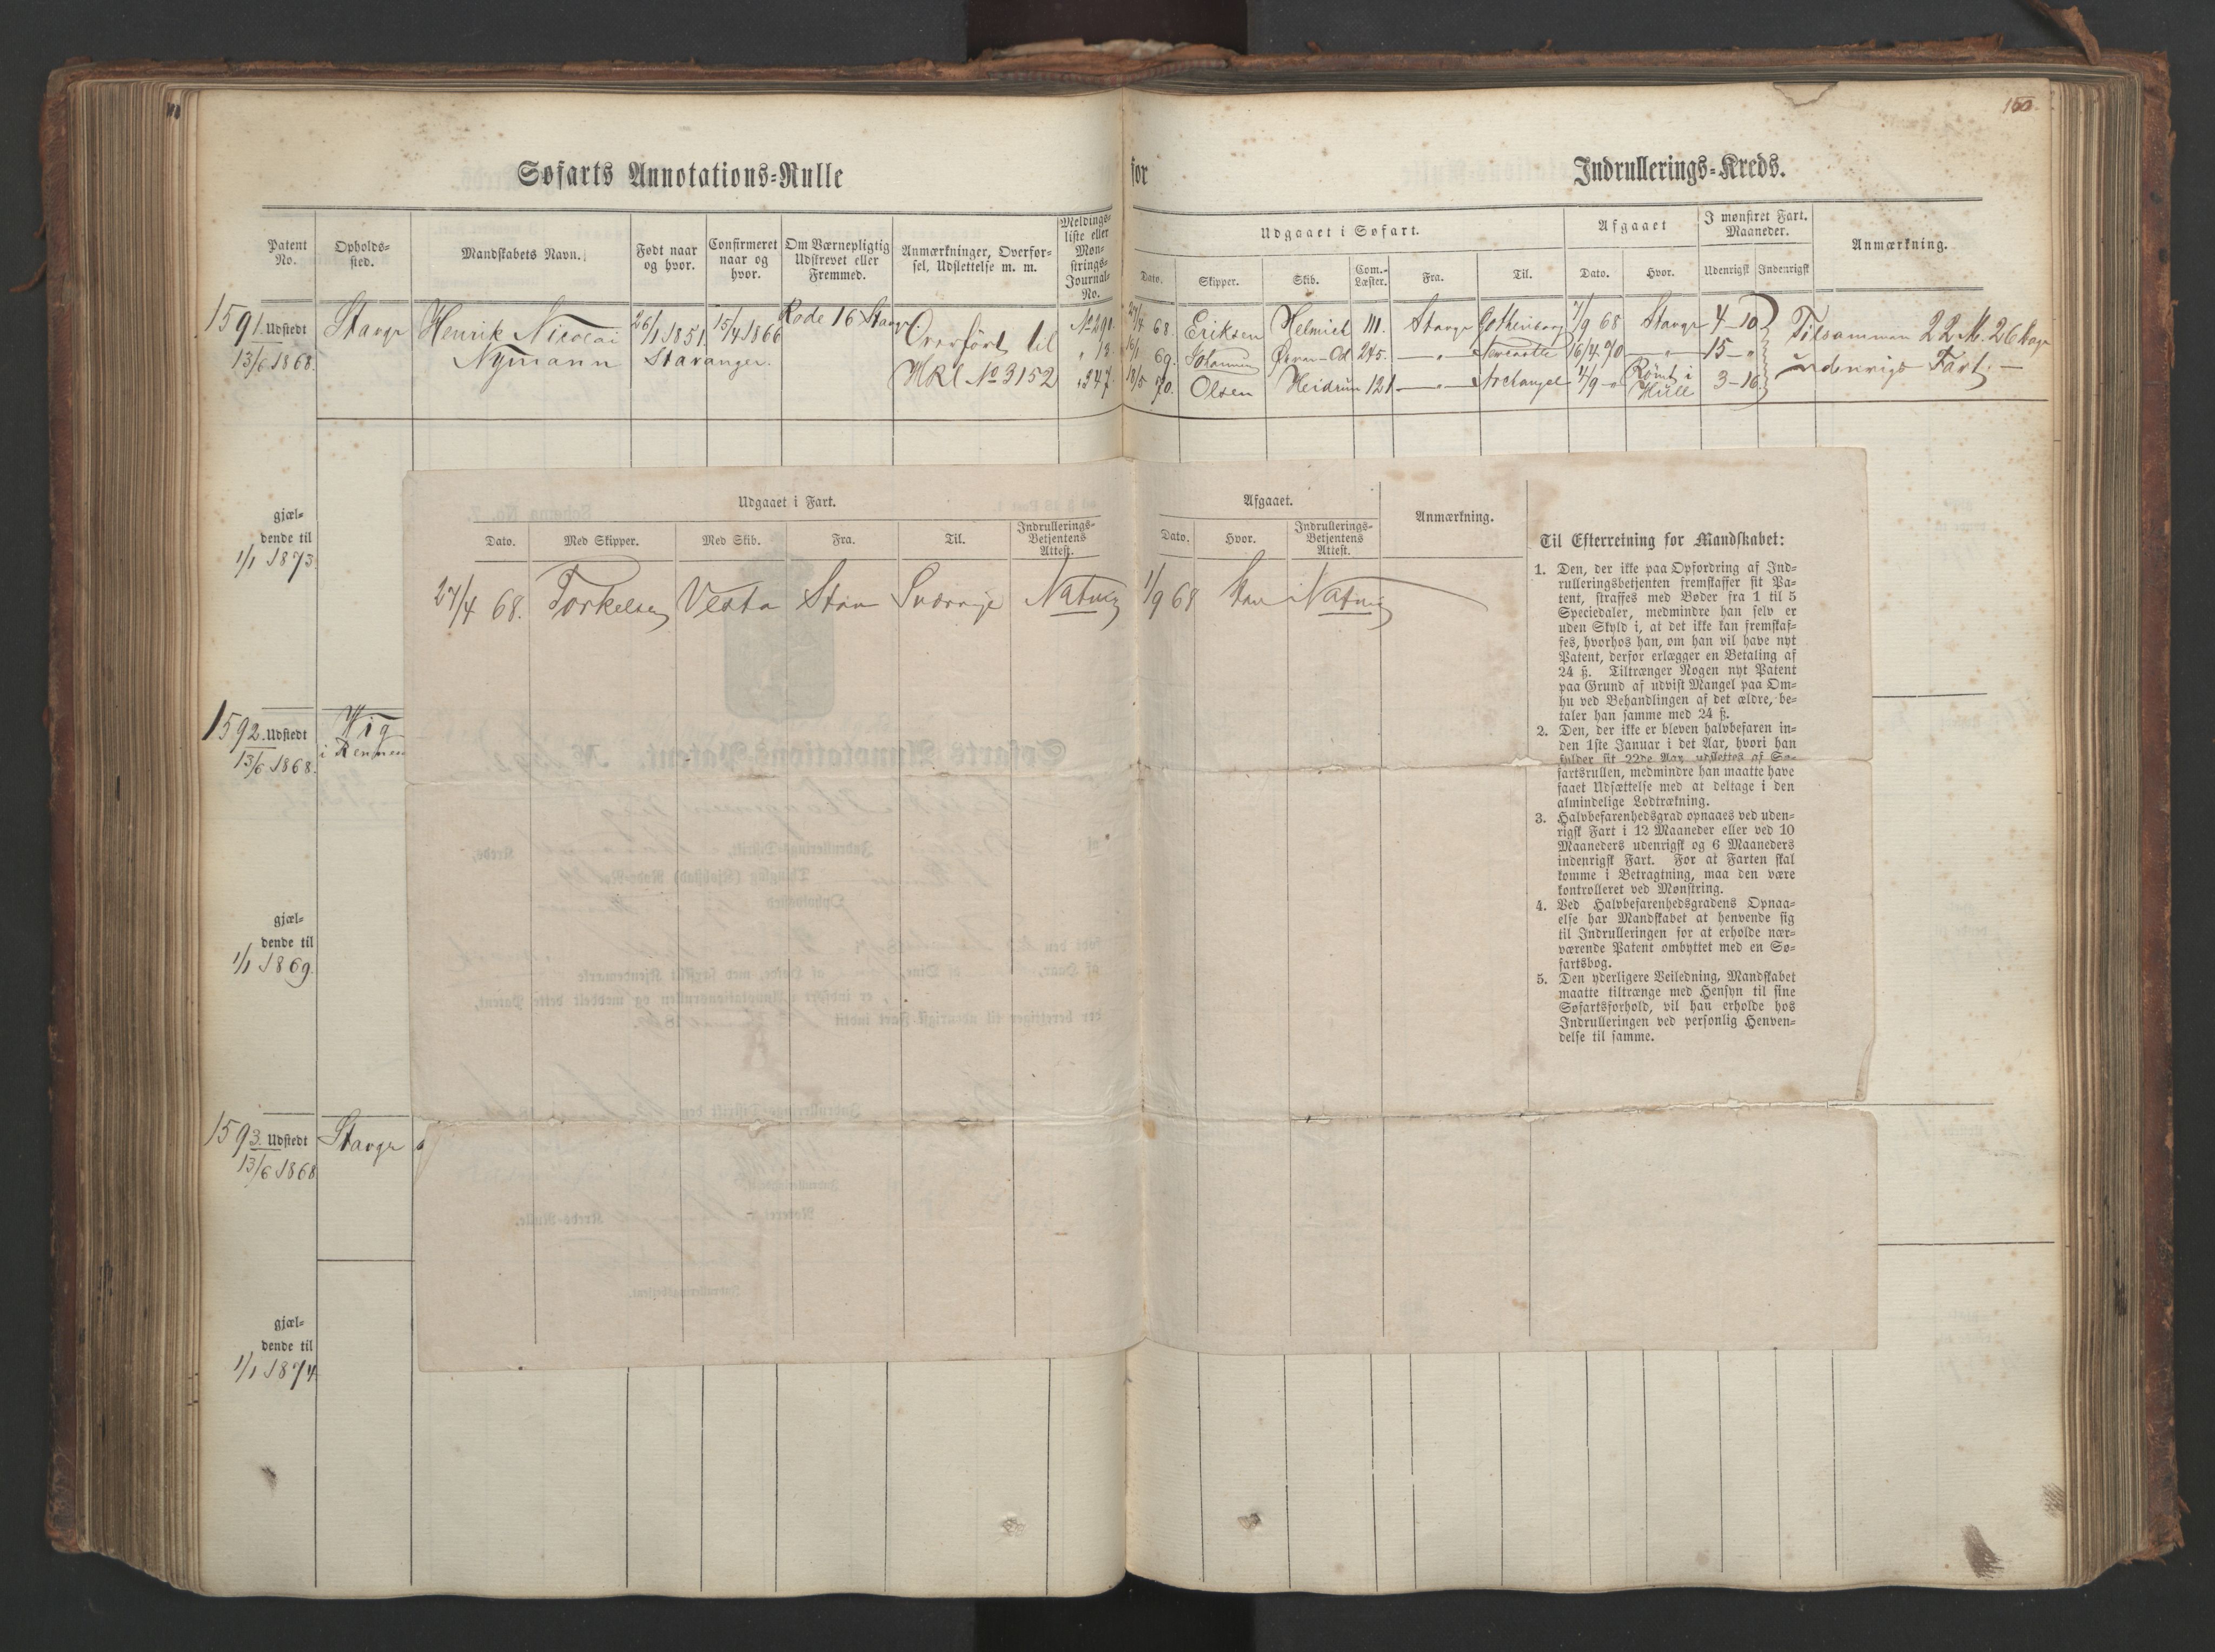 150.
Søfarts Annotations-Rulle for Indrullerings-Kreds.
Patent No.
Opholds-sted.
Mandskabets Navn.
Født naar og hvor.
Confirmeret naar og hvor.
Om Værnepligtig Udskrevet eller Fremmed.
Anmærkninger, Overfør-sel, Udslettelse m. m.
Meldings-liste eller Møn-strings-Journal-No.
Udgaaet i Søfart.
Dato.
Skipper.
Skib.
Com.-Læster.
Fra.
Til.
Afgaaet
Dato.
Hvor.
I mønstret Fart. Maaneder.
Udenrigsk
Indenrigsk
Anmærkning.
1591. Udstedt
13/6 1868.
Stavgr
Henrik Nicolai
Nymann
26/1 1851.
Stavanger.
15/4 1866
Rode 16 Stavgr.
Overført til
HRl No 3152
No 291. 27/4 68. Eriksen Helmich 111. Stavgr Gothenborg 7/9 68 Stavgr 4-10
" 13. 16/1 69. Johannesen Ørnen-Od 245. — " — Newcastle 16/4 70 — " — 15 - "
" 347. 18/5 70. Olsen Heidrun 121 — " — Archangel 4/9 - " Rømt i Hull 3-16.
Tilsammen 22 M. 26 Dage
udenrigs Fart. —
gjæl-
dende til
1/1 1873.
1592. Udstedt
13/6 1868.
Vig
i Rennesø
gjæl-
dende til
1/1 1869.
1593. Udstedt
13/6 1868
Stavgr
gjæl-
dende til
1/1 1874
Udgaaet i Fart.
Dato.
Med Skipper.
Med Skib.
Fra.
Til.
Indrullerings-Betjentens Attest.
Afgaaet.
Dato.
Hvor.
Indrullerings-Betjentens Attest.
Anmærkning.
27/4 68. Torkelsen Vesta Stav Sverrige 1/9 68 Stav
Til Efterretning for Mandskabet:
1. Den, der ikke paa Opfordring af Ind-
rulleringsbetjenten fremskaffer sit Pa-
tent, straffes med Bøder fra 1 til 5
Speciedaler, medmindre han selv er
uden Skyld i, at det ikke kan fremskaf-
fes, hvorhos han, om han vil have nyt
Patent, derfor erlægger en Betaling af
24 ß. Tiltrænger Nogen nyt Patent
paa Grund af udvist Mangel paa Om-
hu ved Behandlingen af det ældre, be-
taler han samme med 24 ß.
2. Den, der ikke er bleven halvbefaren in-
den 1ste Januar i det Aar, hvori han
fylder sit 22de Aar, udslettes af Sø-
fartsrullen, medmindre han maatte have
faaet Udsættelse med at deltage i den
almindelige Lodtrækning.
3. Halvbefarenhedsgrad opnaaes ved uden-
rigsk Fart i 12 Maaneder eller ved 10
Maaneders udenrigsk og 6 Maaneders
indenrigsk Fart. For at Farten skal
komme i Betragtning, maa den være
kontrolleret ved Mønstring.
4. Ved Halvbefarenhedsgradens Opnaa-
else har Mandskabet at henvende sig
til Indrulleringen for at erholde nær-
værende Patent ombyttet med en Sø-
fartsbog.
5. Den yderligere Veiledning, Mandskabet
maatte tiltrænge med Hensyn til sine
Søfartsforhold, vil han erholde hos
Indrulleringen ved personlig Henven-
delse til samme.